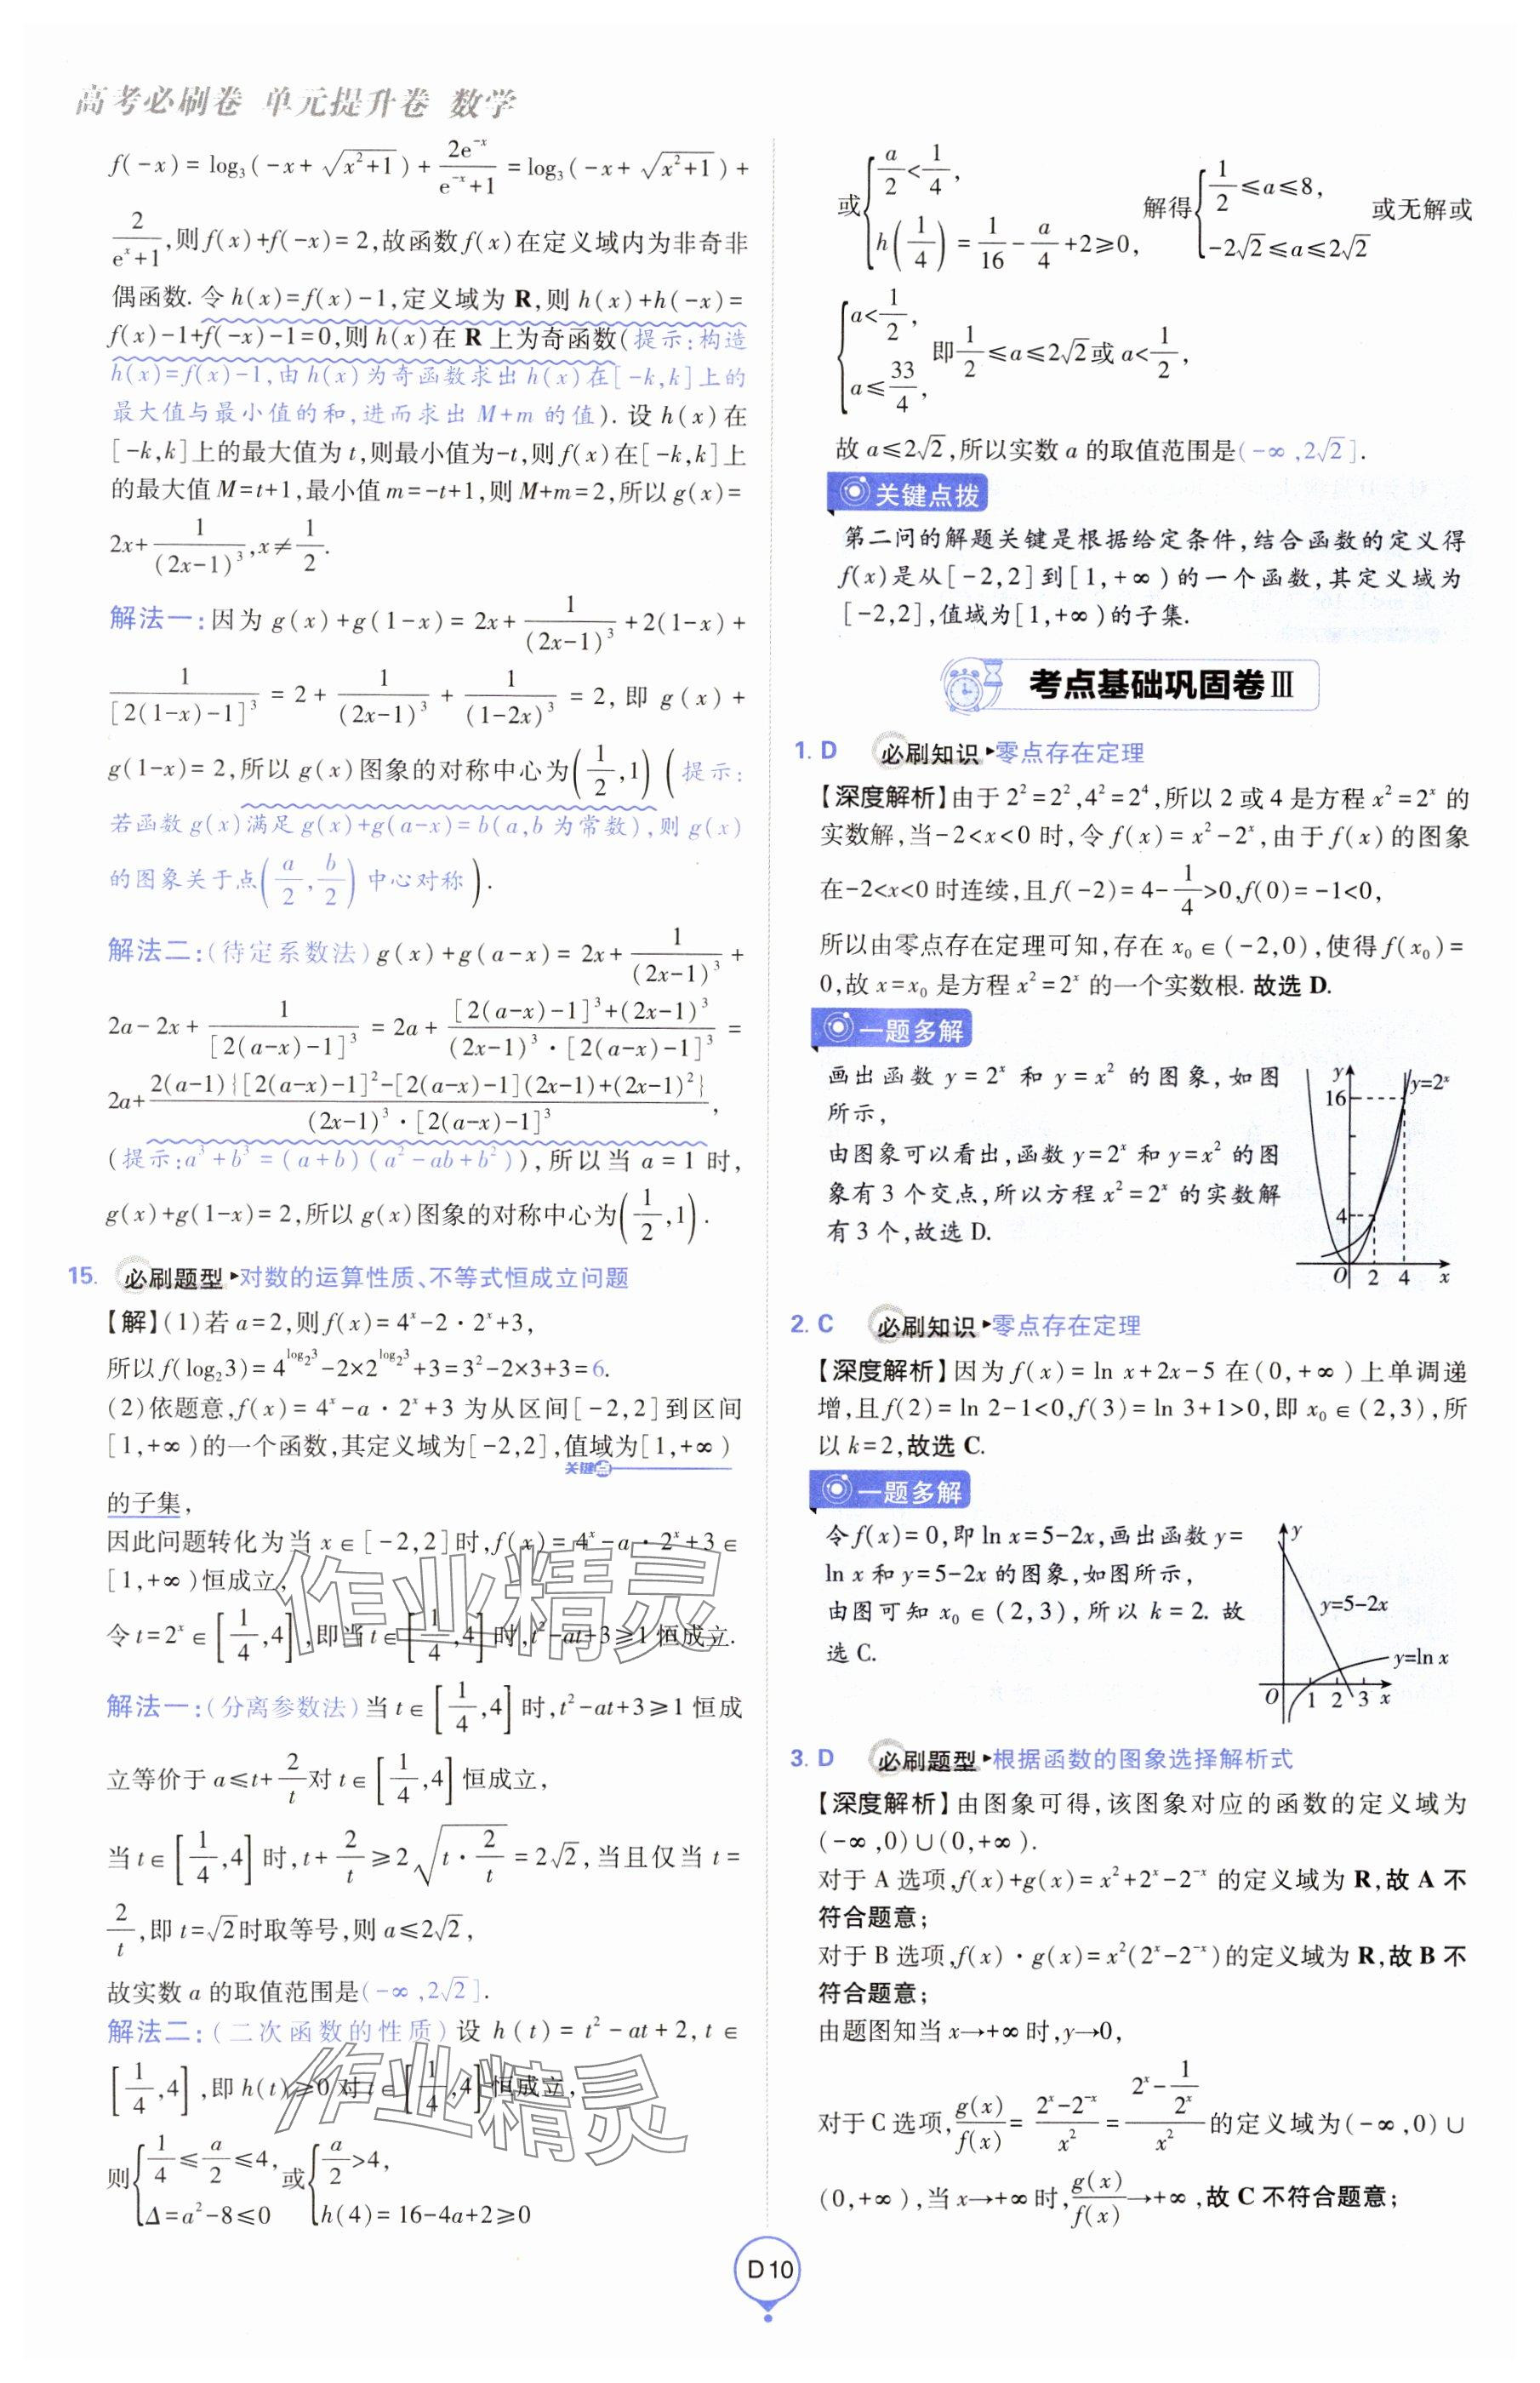 高考必刷卷 单元提升卷 数学
f(-x)=log₃(-x+√(x²+1))+2e⁻ˣ/(e⁻ˣ+1)=log₃(-x+√(x²+1))+
2/(eˣ+1),则f(x)+f(-x)=2,故函数f(x)在定义域内为非奇非
偶函数.令h(x)=f(x)-1,定义域为R,则h(x)+h(-x)=
f(x)-1+f(-x)-1=0,则h(x)在R上为奇函数(提示:构造
h(x)=f(x)-1,由h(x)为奇函数求出h(x)在[-k,k]上的
最大值与最小值的和,进而求出M+m的值).设h(x)在
[-k,k]上的最大值为t,则最小值为-t,则f(x)在[-k,k]上
的最大值M=t+1,最小值m=-t+1,则M+m=2,所以g(x)=
2x+1/(2x-1)³,x≠1/2.
解法一:因为g(x)+g(1-x)=2x+1/(2x-1)³+2(1-x)+
1/[2(1-x)-1]³=2+1/(2x-1)³+1/(1-2x)³=2,即g(x)+
g(1-x)=2,所以g(x)图象的对称中心为(1/2,1)(提示:
若函数g(x)满足g(x)+g(a-x)=b(a,b为常数),则g(x)
的图象关于点(a/2,b/2)中心对称).
解法二:(待定系数法)g(x)+g(a-x)=2x+1/(2x-1)³+
2a-2x+1/[2(a-x)-1]³=2a+{[2(a-x)-1]³+(2x-1)³}/{(2x-1)³·[2(a-x)-1]³}=
2a+2(a-1){[2(a-x)-1]²-[2(a-x)-1](2x-1)+(2x-1)²}/(2x-1)³·[2(a-x)-1]³,
(提示:a³+b³=(a+b)(a²-ab+b²)),所以当a=1时,
g(x)+g(1-x)=2,所以g(x)图象的对称中心为(1/2,1).
15. 必刷题型▸对数的运算性质、不等式恒成立问题
【解】(1)若a=2,则f(x)=4ˣ-2·2ˣ+3,
所以f(log₂3)=4^(log₂3)-2×2^(log₂3)+3=3²-2×3+3=6.
(2)依题意,f(x)=4ˣ-a·2ˣ+3为从区间[-2,2]到区间
[1,+∞)的一个函数,其定义域为[-2,2],值域为[1,+∞)
关键点
的子集,
因此问题转化为当x∈[-2,2]时,f(x)=4ˣ-a·2ˣ+3∈
[1,+∞)恒成立,
令t=2ˣ∈[1/4,4],即当t∈[1/4,4]时,t²-at+3≥1恒成立.
解法一:(分离参数法)当t∈[1/4,4]时,t²-at+3≥1恒成
立等价于a≤t+2/t对t∈[1/4,4]恒成立,
当t∈[1/4,4]时,t+2/t≥2√(t·2/t)=2√2,当且仅当t=
2/t,即t=√2时取等号,则a≤2√2,
故实数a的取值范围是(-∞,2√2].
解法二:(二次函数的性质)设h(t)=t²-at+2,t∈
[1/4,4],即h(t)≥0对t∈[1/4,4]恒成立,
则{1/4≤a/2≤4, Δ=a²-8≤0 或{a/2>4, h(4)=16-4a+2≥0
或{a/2<1/4, h(1/4)=1/16-a/4+2≥0, 解得{1/2≤a≤8, -2√2≤a≤2√2 或无解或
{a<1/2, a≤33/4, 即1/2≤a≤2√2或a<1/2,
故a≤2√2,所以实数a的取值范围是(-∞,2√2].
关键点拨
第二问的解题关键是根据给定条件,结合函数的定义得
f(x)是从[-2,2]到[1,+∞)的一个函数,其定义域为
[-2,2],值域为[1,+∞)的子集.
考点基础巩固卷Ⅲ
1. D 必刷知识▸零点存在定理
【深度解析】由于2²=2²,4²=2⁴,所以2或4是方程x²=2ˣ的
实数解,当-2<x<0时,令f(x)=x²-2ˣ,由于f(x)的图象
在-2<x<0时连续,且f(-2)=4-1/4>0,f(0)=-1<0,
所以由零点存在定理可知,存在x₀∈(-2,0),使得f(x₀)=
0,故x=x₀是方程x²=2ˣ的一个实数根.故选D.
一题多解
画出函数y=2ˣ和y=x²的图象,如图
所示,
由图象可以看出,函数y=2ˣ和y=x²的图
象有3个交点,所以方程x²=2ˣ的实数解
有3个,故选D.
y
y=2ˣ
16
4
O 2 4 x
2. C 必刷知识▸零点存在定理
【深度解析】因为f(x)=ln x+2x-5在(0,+∞)上单调递
增,且f(2)=ln 2-1<0,f(3)=ln 3+1>0,即x₀∈(2,3),所
以k=2,故选C.
一题多解
令f(x)=0,即ln x=5-2x,画出函数y=
ln x和y=5-2x的图象,如图所示,
由图可知x₀∈(2,3),所以k=2.故
选C.
y
y=5-2x
y=ln x
O 1 2 3 x
3. D 必刷题型▸根据函数的图象选择解析式
【深度解析】由图象可得,该图象对应的函数的定义域为
(-∞,0)∪(0,+∞).
对于A选项,f(x)+g(x)=x²+2ˣ-2⁻ˣ的定义域为R,故A不
符合题意;
对于B选项,f(x)·g(x)=x²(2ˣ-2⁻ˣ)的定义域为R,故B不
符合题意;
由题图知当x→+∞时,y→0,
对于C选项,g(x)/f(x)=(2ˣ-2⁻ˣ)/x²=(2ˣ-1/2ˣ)/x²的定义域为(-∞,0)∪
(0,+∞),当x→+∞时,g(x)/f(x)→+∞,故C不符合题意;
作业精灵
作业精灵
D10